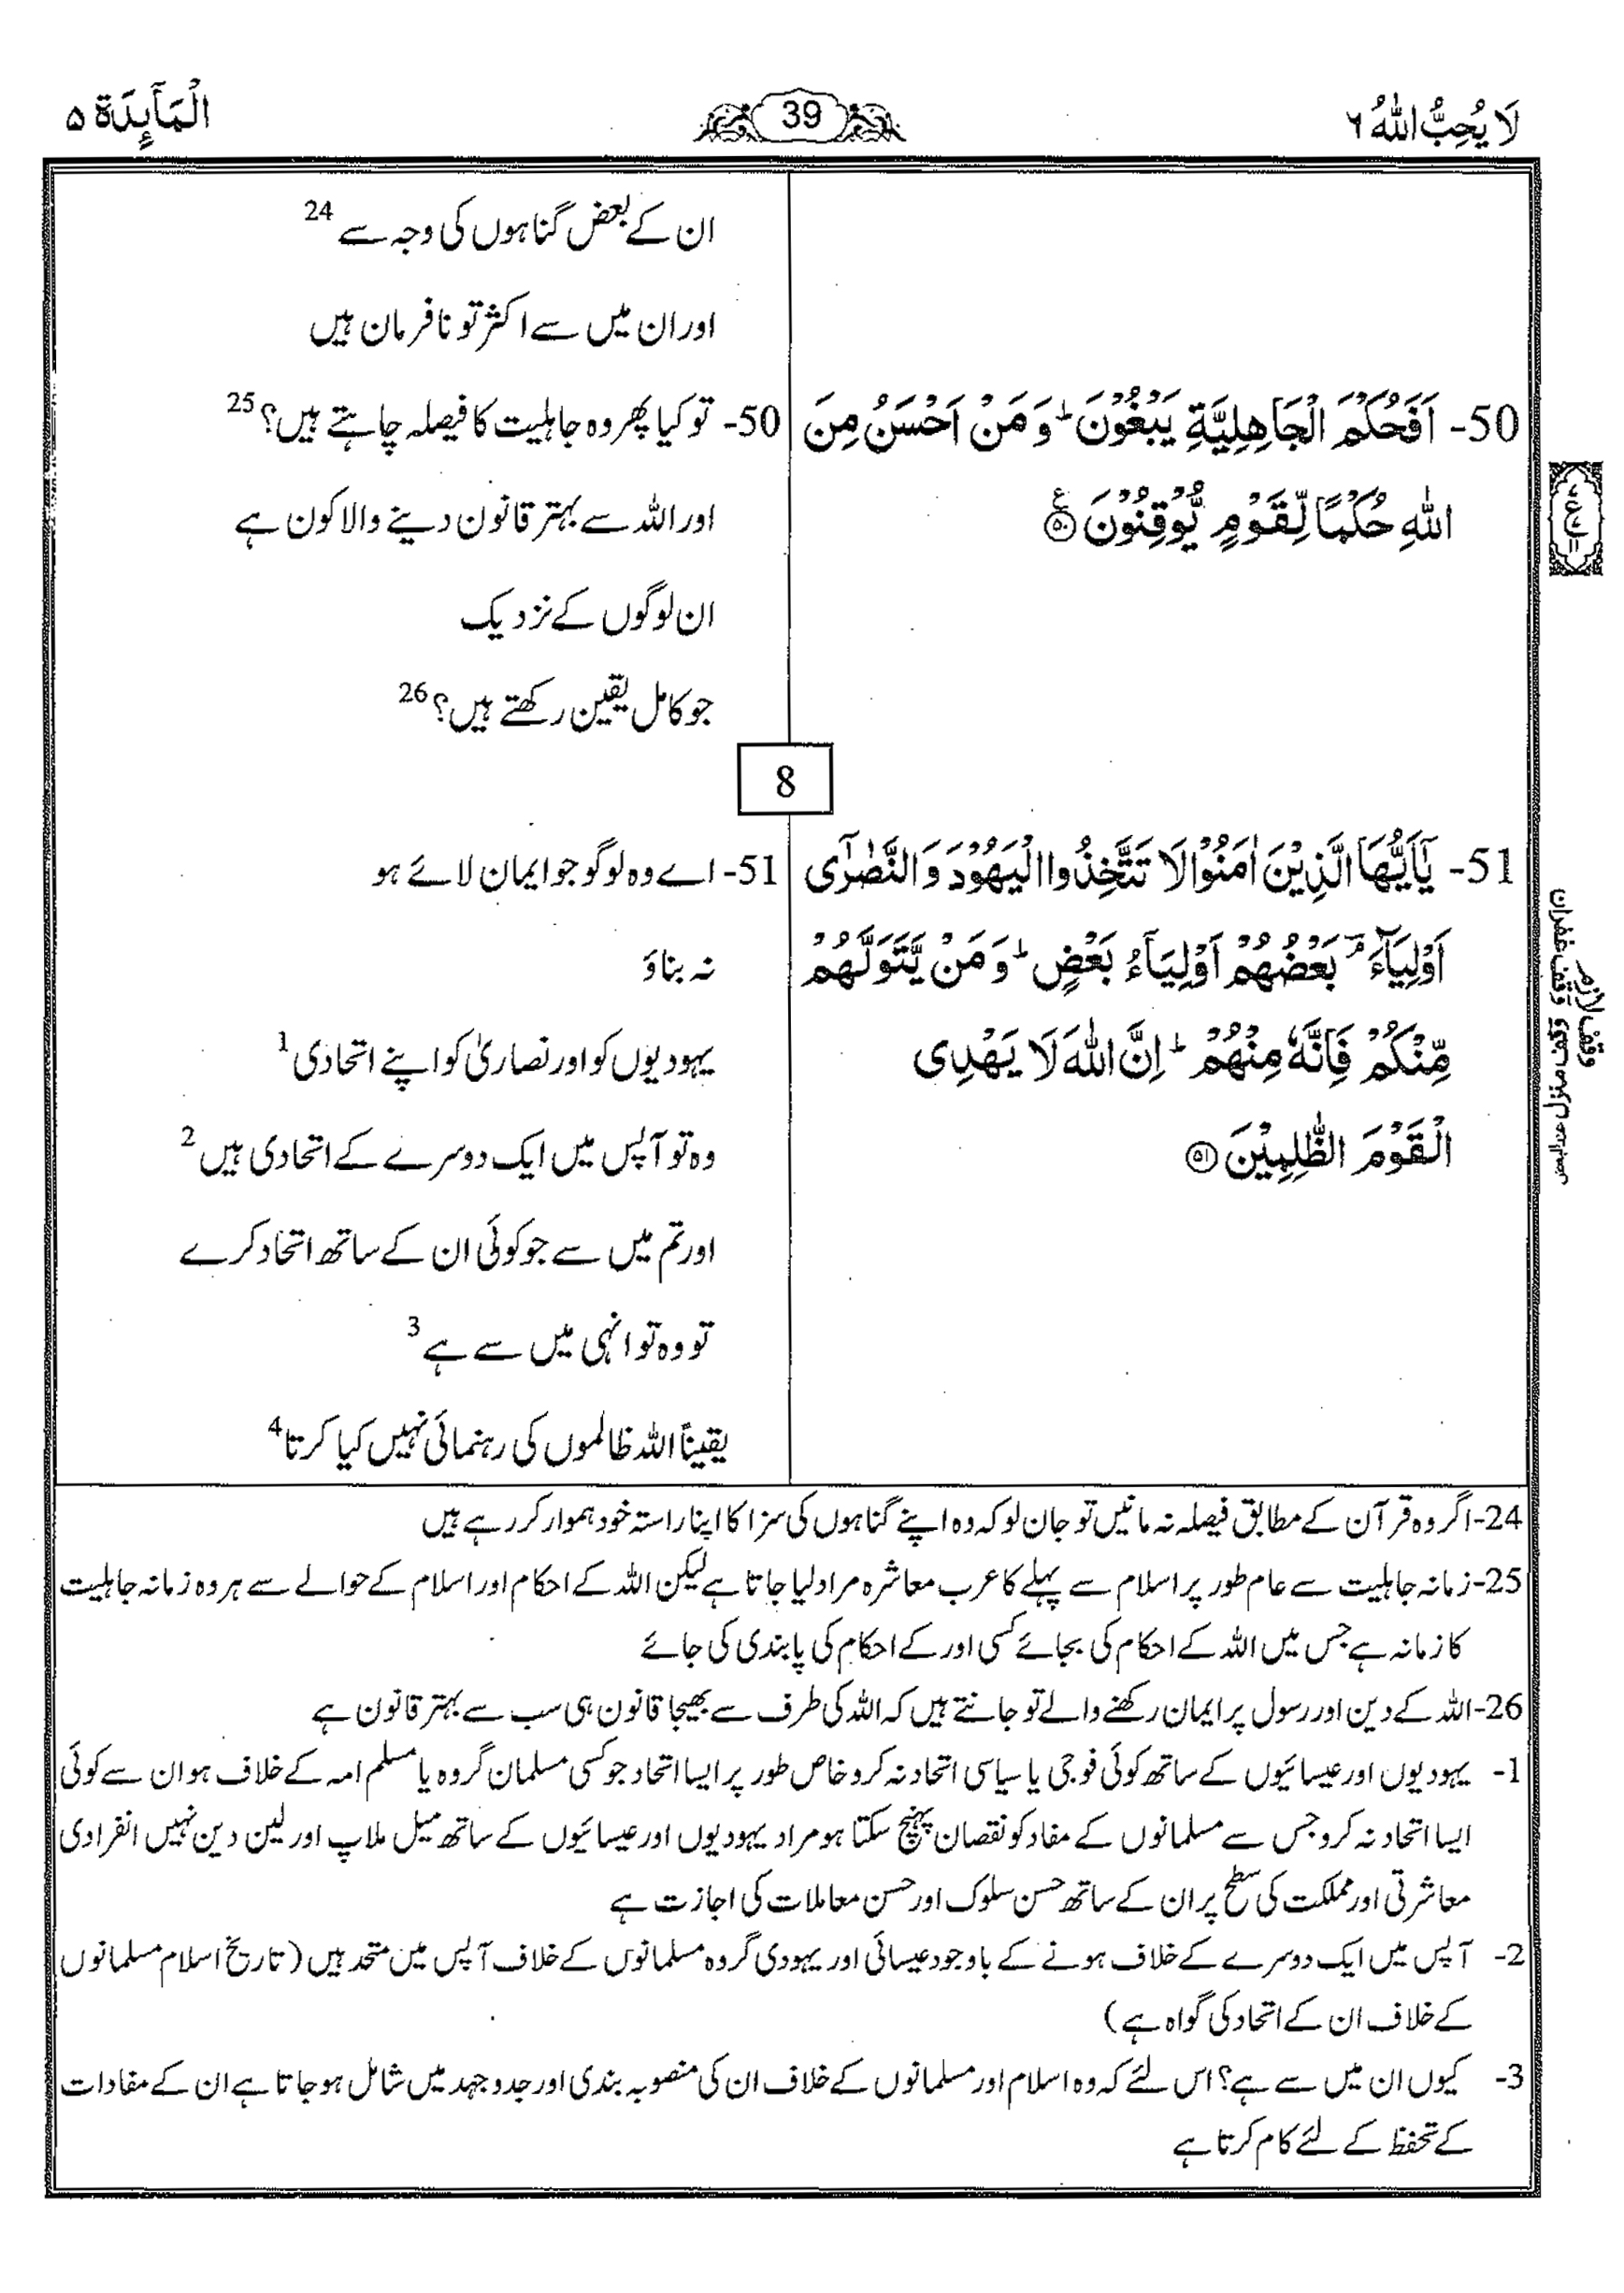 لَا يُحِبُّ اللّٰهُ ۶
39
الْمَآئِدَة ۵
ان کے بعض گناہوں کی وجہ سے 24
اور ان میں سے اکثر تو نافرمان ہیں
50- اَفَحُكْمَ الْجَاهِلِيَّةِ يَبْغُوْنَ ؕ وَ مَنْ اَحْسَنُ مِنَ
اللّٰهِ حُكْمًا لِّقَوْمٍ يُّوْقِنُوْنَ ﴿۵۰﴾ ع
50- تو کیا پھر وہ جاہلیت کا فیصلہ چاہتے ہیں؟ 25
اور اللہ سے بہتر قانون دینے والا کون ہے
ان لوگوں کے نزدیک
جو کامل یقین رکھتے ہیں؟ 26
8
51- يٰۤاَيُّهَا الَّذِيْنَ اٰمَنُوْا لَا تَتَّخِذُوا الْيَهُوْدَ وَ النَّصٰرٰۤى
اَوْلِيَآءَ ۘ بَعْضُهُمْ اَوْلِيَآءُ بَعْضٍ ؕ وَ مَنْ يَّتَوَلَّهُمْ
مِّنْكُمْ فَاِنَّهٗ مِنْهُمْ ؕ اِنَّ اللّٰهَ لَا يَهْدِى
الْقَوْمَ الظّٰلِمِيْنَ ﴿۵۱﴾
وقف لازم
وقف غفران
51- اے وہ لوگو جو ایمان لائے ہو
نہ بناؤ
یہودیوں کو اور نصاریٰ کو اپنے اتحادی 1
وہ تو آپس میں ایک دوسرے کے اتحادی ہیں 2
اور تم میں سے جو کوئی ان کے ساتھ اتحاد کرے
تو وہ تو انہی میں سے ہے 3
یقیناً اللہ ظالموں کی رہنمائی نہیں کیا کرتا 4
24- اگر وہ قرآن کے مطابق فیصلہ نہ مانیں تو جان لو کہ وہ اپنے گناہوں کی سزا کا اپنا راستہ خود ہموار کر رہے ہیں
25- زمانہ جاہلیت سے عام طور پر اسلام سے پہلے کا عرب معاشرہ مراد لیا جاتا ہے لیکن اللہ کے احکام اور اسلام کے حوالے سے ہر وہ زمانہ جاہلیت
کا زمانہ ہے جس میں اللہ کے احکام کی بجائے کسی اور کے احکام کی پابندی کی جائے
26- اللہ کے دین اور رسول پر ایمان رکھنے والے تو جانتے ہیں کہ اللہ کی طرف سے بھیجا قانون ہی سب سے بہتر قانون ہے
1- یہودیوں اور عیسائیوں کے ساتھ کوئی فوجی یا سیاسی اتحاد نہ کرو خاص طور پر ایسا اتحاد جو کسی مسلمان گروہ یا مسلم امہ کے خلاف ہو ان سے کوئی
ایسا اتحاد نہ کرو جس سے مسلمانوں کے مفاد کو نقصان پہنچ سکتا ہو مراد یہودیوں اور عیسائیوں کے ساتھ میل ملاپ اور لین دین نہیں انفرادی
معاشرتی اور مملکت کی سطح پر ان کے ساتھ حسن سلوک اور حسن معاملات کی اجازت ہے
2- آپس میں ایک دوسرے کے خلاف ہونے کے باوجود عیسائی اور یہودی گروہ مسلمانوں کے خلاف آپس میں متحد ہیں (تاریخ اسلام مسلمانوں
کے خلاف ان کے اتحاد کی گواہ ہے)
3- کیوں ان میں سے ہے؟ اس لئے کہ وہ اسلام اور مسلمانوں کے خلاف ان کی منصوبہ بندی اور جدوجہد میں شامل ہو جاتا ہے ان کے مفادات
کے تحفظ کے لئے کام کرتا ہے